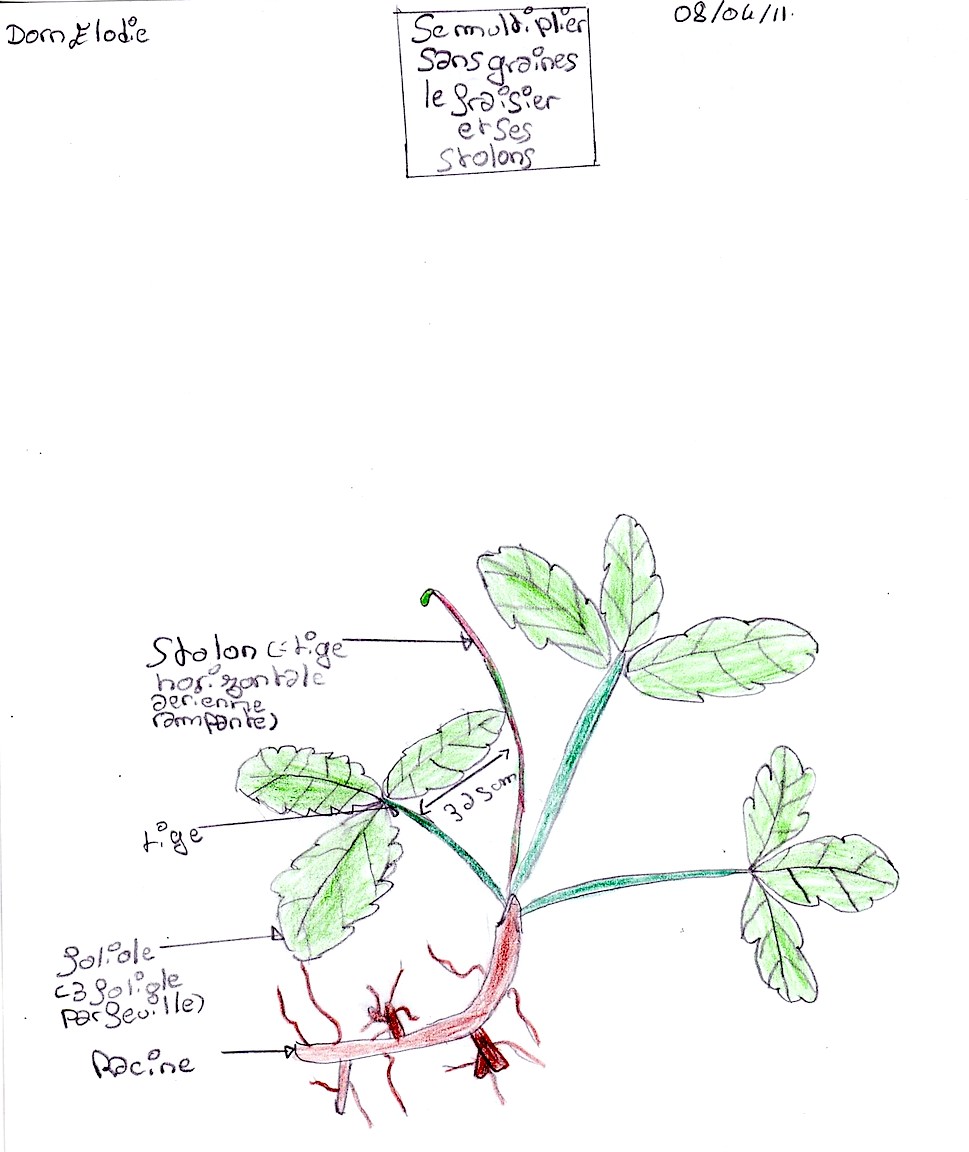 Dorn Elodie
08/04/11.
Se multiplier
sans graines
le fraisier
et ses
stolons
Stolon (= tige
horizontale
aerienne
rampante)
3 à 5 cm
tige
foliole
(3 foliole
par feuille)
Racine